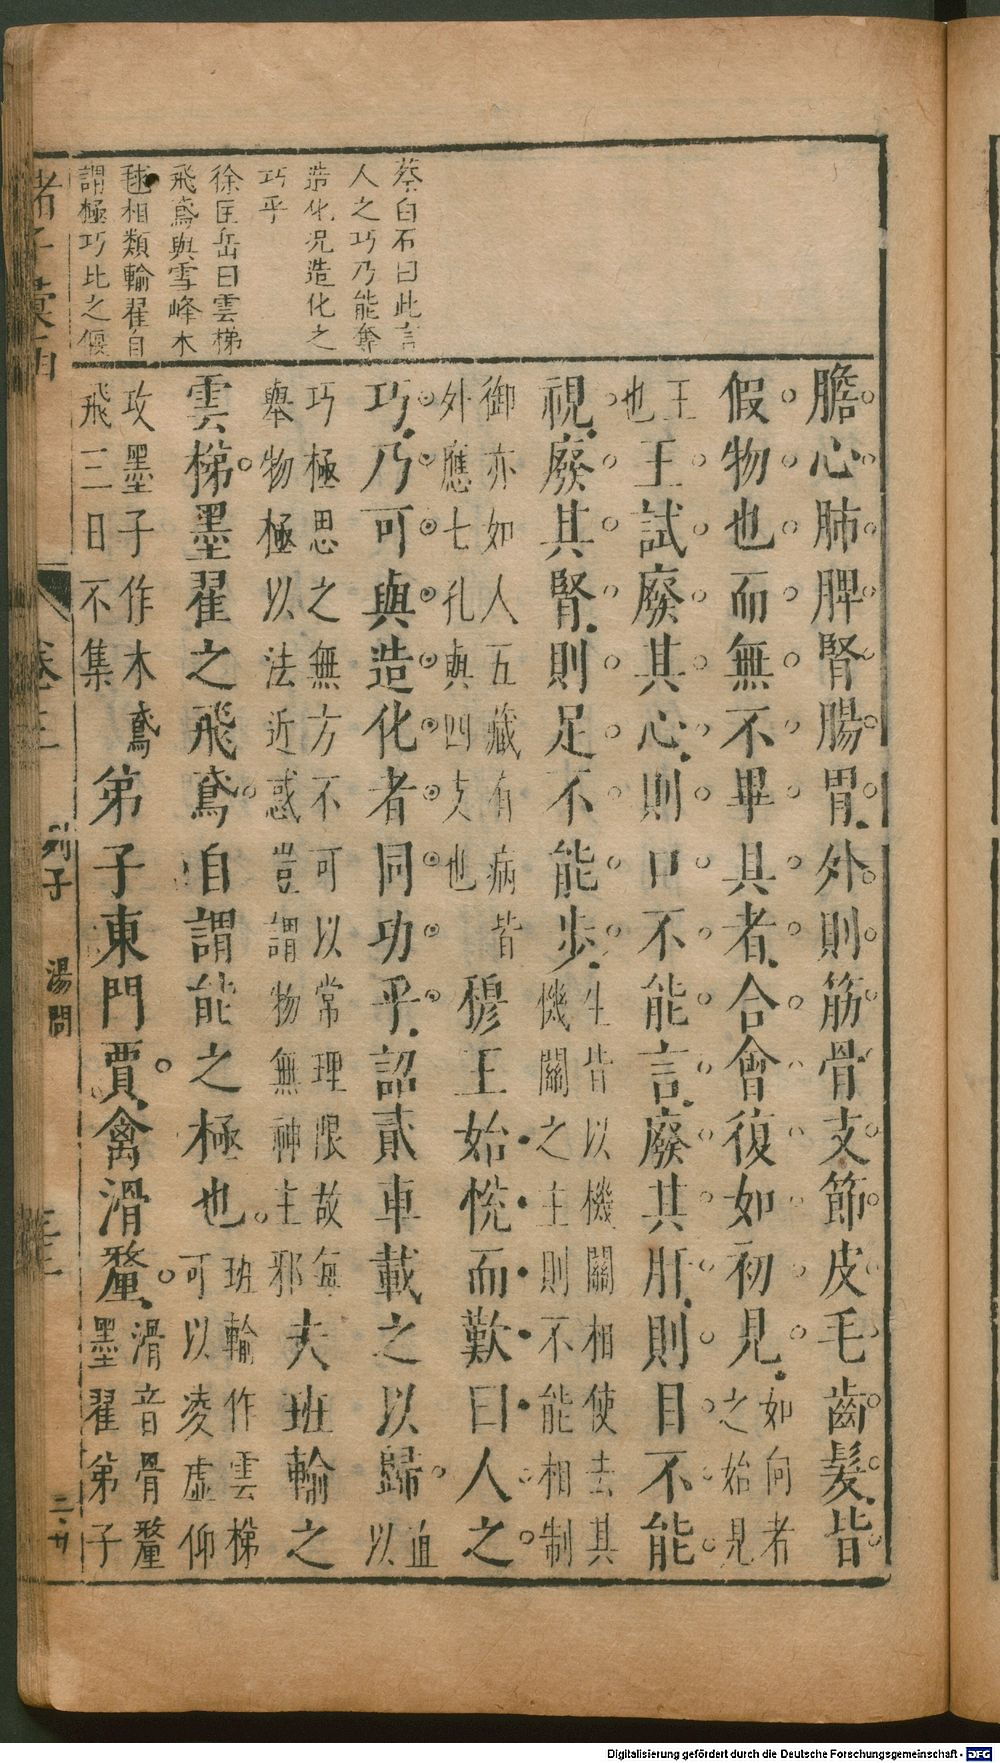 蔡白石曰此言
人之巧乃能奪
造化况造化之
巧乎
徐匡岳曰雲梯
飛鳶與雪峰木
毬相類輸翟自
謂極巧比之偃
膽心肺脾腎腸胃外則筋骨支節皮毛齒髮皆
假物也而無不畢具者合會復如初見如向者之始見
王也王試廢其心則口不能言廢其肝則目不能
視廢其腎則足不能步生皆以機關相使去其機關之主則不能相制
御亦如人五藏有病皆外應七孔與四支也穆王始悅而歎曰人之
巧乃可與造化者同功乎詔貳車載之以歸血以
巧極思之無方不可以常理限故每舉物極以法近惑豈謂物無神主邪夫班輸之
雲梯墨翟之飛鳶自謂能之極也班輸作雲梯可以凌虛仰
攻墨子作木鳶飛三日不集弟子東門賈禽滑釐滑音骨釐墨翟弟子
列子 湯問
Digitalisierung gefördert durch die Deutsche Forschungsgemeinschaft - DFG